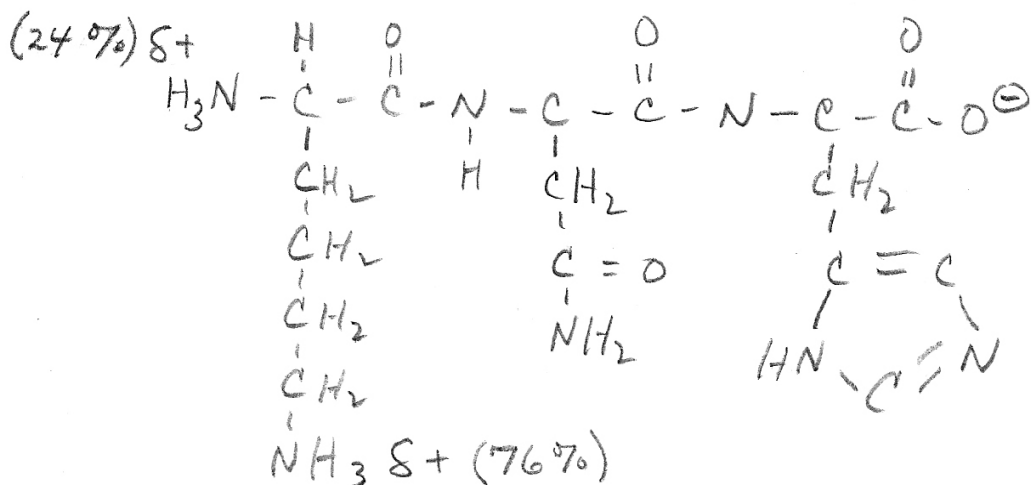 (24 %) δ+
H O O O
H₃N - C - C - N - C - C - N - C - C - O⊖
CH₂ H CH₂ CH₂
CH₂ C = O C = C
CH₂ NH₂ HN C = N
CH₂
NH₃ δ+ (76%)